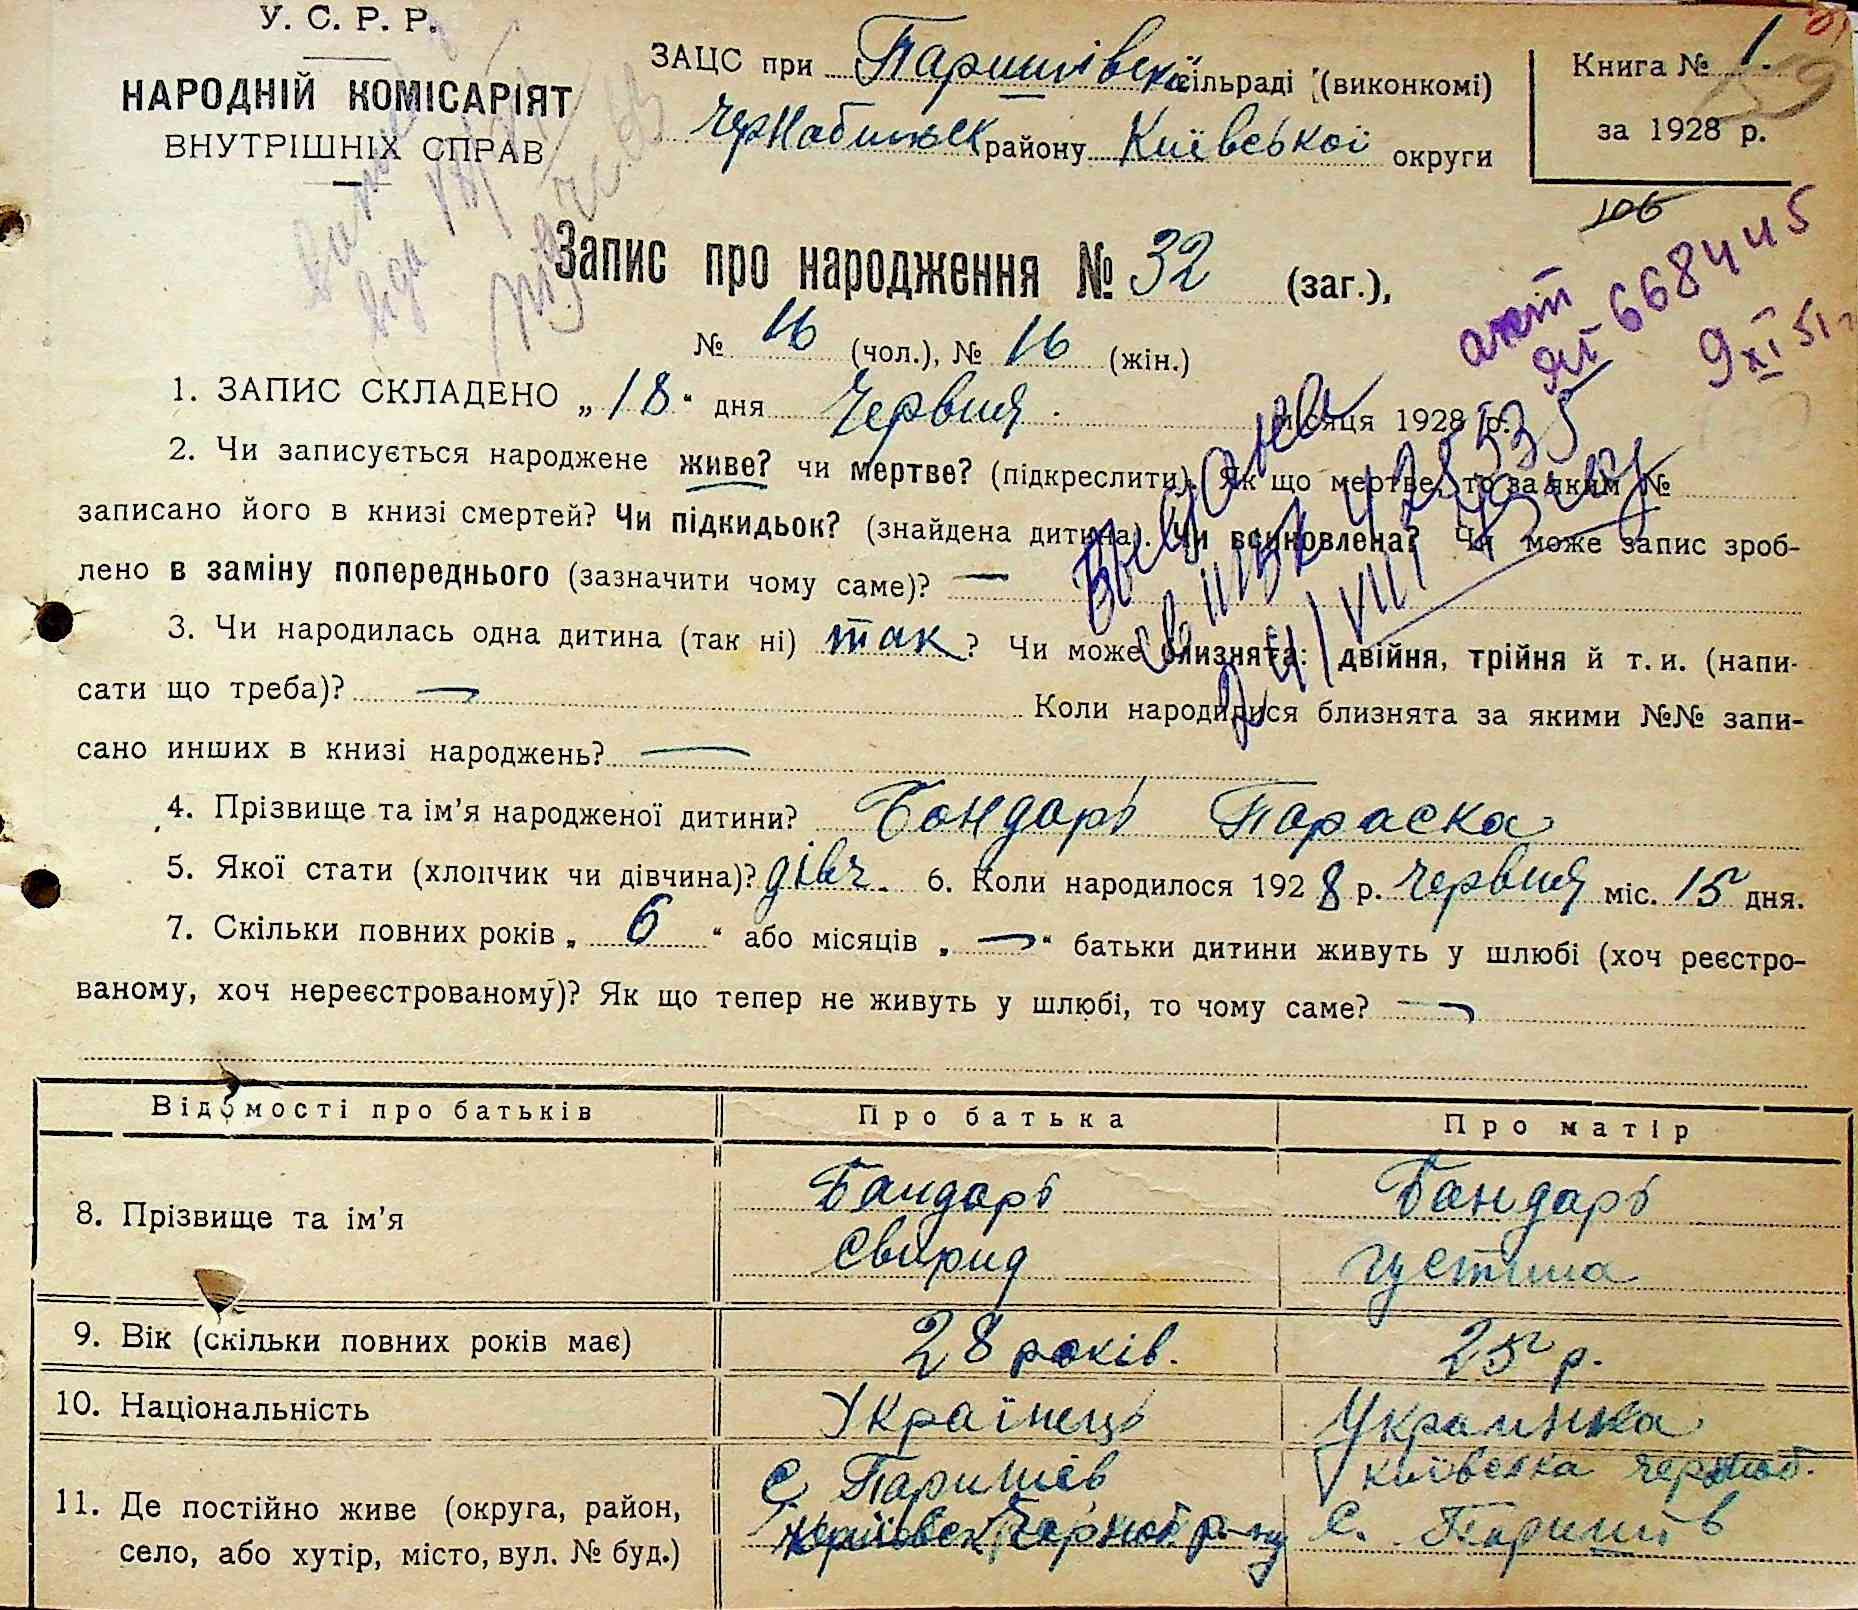 У. С. Р. Р.
НАРОДНІЙ КОМІСАРІЯТ
ВНУТРІШНІХ СПРАВ
ЗАЦС при Паришівській сільраді (виконкомі)
району Київської округи
Книга № 1.
за 1928 р.
59
106
Запис про народження № 32 (заг.),
№ 16 (чол.), № 16 (жін.)
акт
ЯЛ 6684445
9 XI 51 г
1. ЗАПИС СКЛАДЕНО „18“ дня Червня місяця 1928 р.
2. Чи записується народжене живе? чи мертве? (підкреслити). Як що мертве, то за яким №
записано його в книзі смертей? Чи підкидьок? (знайдена дитина). Чи всиновлена? Чи може запис зроб-
лено в заміну попереднього (зазначити чому саме)? —
3. Чи народилась одна дитина (так ні) так? Чи може близнята: двійня, трійня й т. и. (напи-
сати що треба)? — Коли народилися близнята за якими №№ запи-
сано инших в книзі народжень? —
4. Прізвище та ім’я народженої дитини? Бондарь Параска
5. Якої стати (хлопчик чи дівчина)? дівч. 6. Коли народилося 1928 р. Червня міс. 15 дня.
7. Скільки повних років „6“ або місяців „—“ батьки дитини живуть у шлюбі (хоч реєстро-
ваному, хоч нереєстрованому)? Як що тепер не живуть у шлюбі, то чому саме? —
Відомості про батьків Про батька Про матір
8. Прізвище та ім’я
Бандарь
Свирид
Бондарь
Густина
9. Вік (скільки повних років має) 28 років. 25 р.
10. Національність Українець Украинка
11. Де постійно живе (округа, район,
село, або хутір, місто, вул. № буд.)
С Паришів
С. Паришів